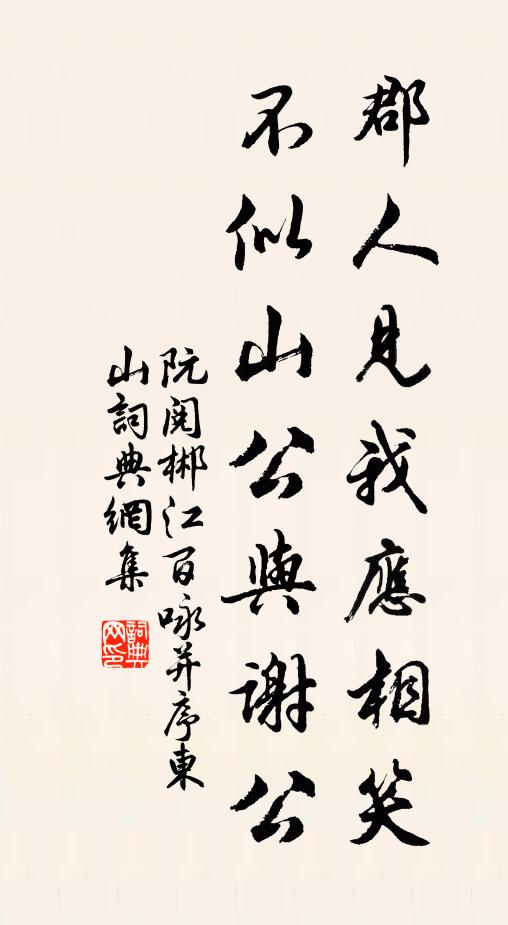 郡人見我應相笑
不似山公與謝公
阮閱郴江百咏并序東
山詞典網集
詞典
网印